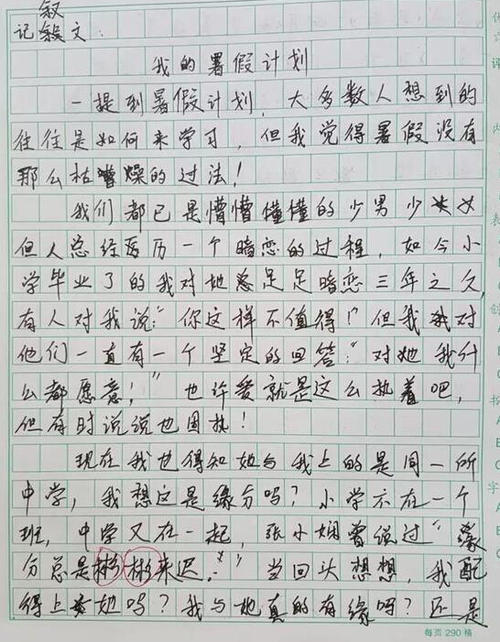 叙
记叙文：
我的暑假计划
一提到暑假计划，大多数人想到的
往往是如何来学习，但我觉得暑假没有
那么枯燥的过法！
我们都已是懵懵懂懂的少男少女
但人总经历一个暗恋的过程，如今小
学毕业了的我对她足足暗恋三年之久，
有人对我说："你这样不值得！"但我对
他们一直有一个坚定的回答："对她我什
么都愿意！"也许爱就是这么执着吧，
但有时说说也固执！
现在我也得知她与我上的是同一所
中学，我想这是缘分吗？小学不在一个
班，中学又在一起，张小娴曾说过"缘
分总是彬彬来迟。"当回头想想，我配
得上她吗？我与她真的有缘吗？还是
每页 290 格